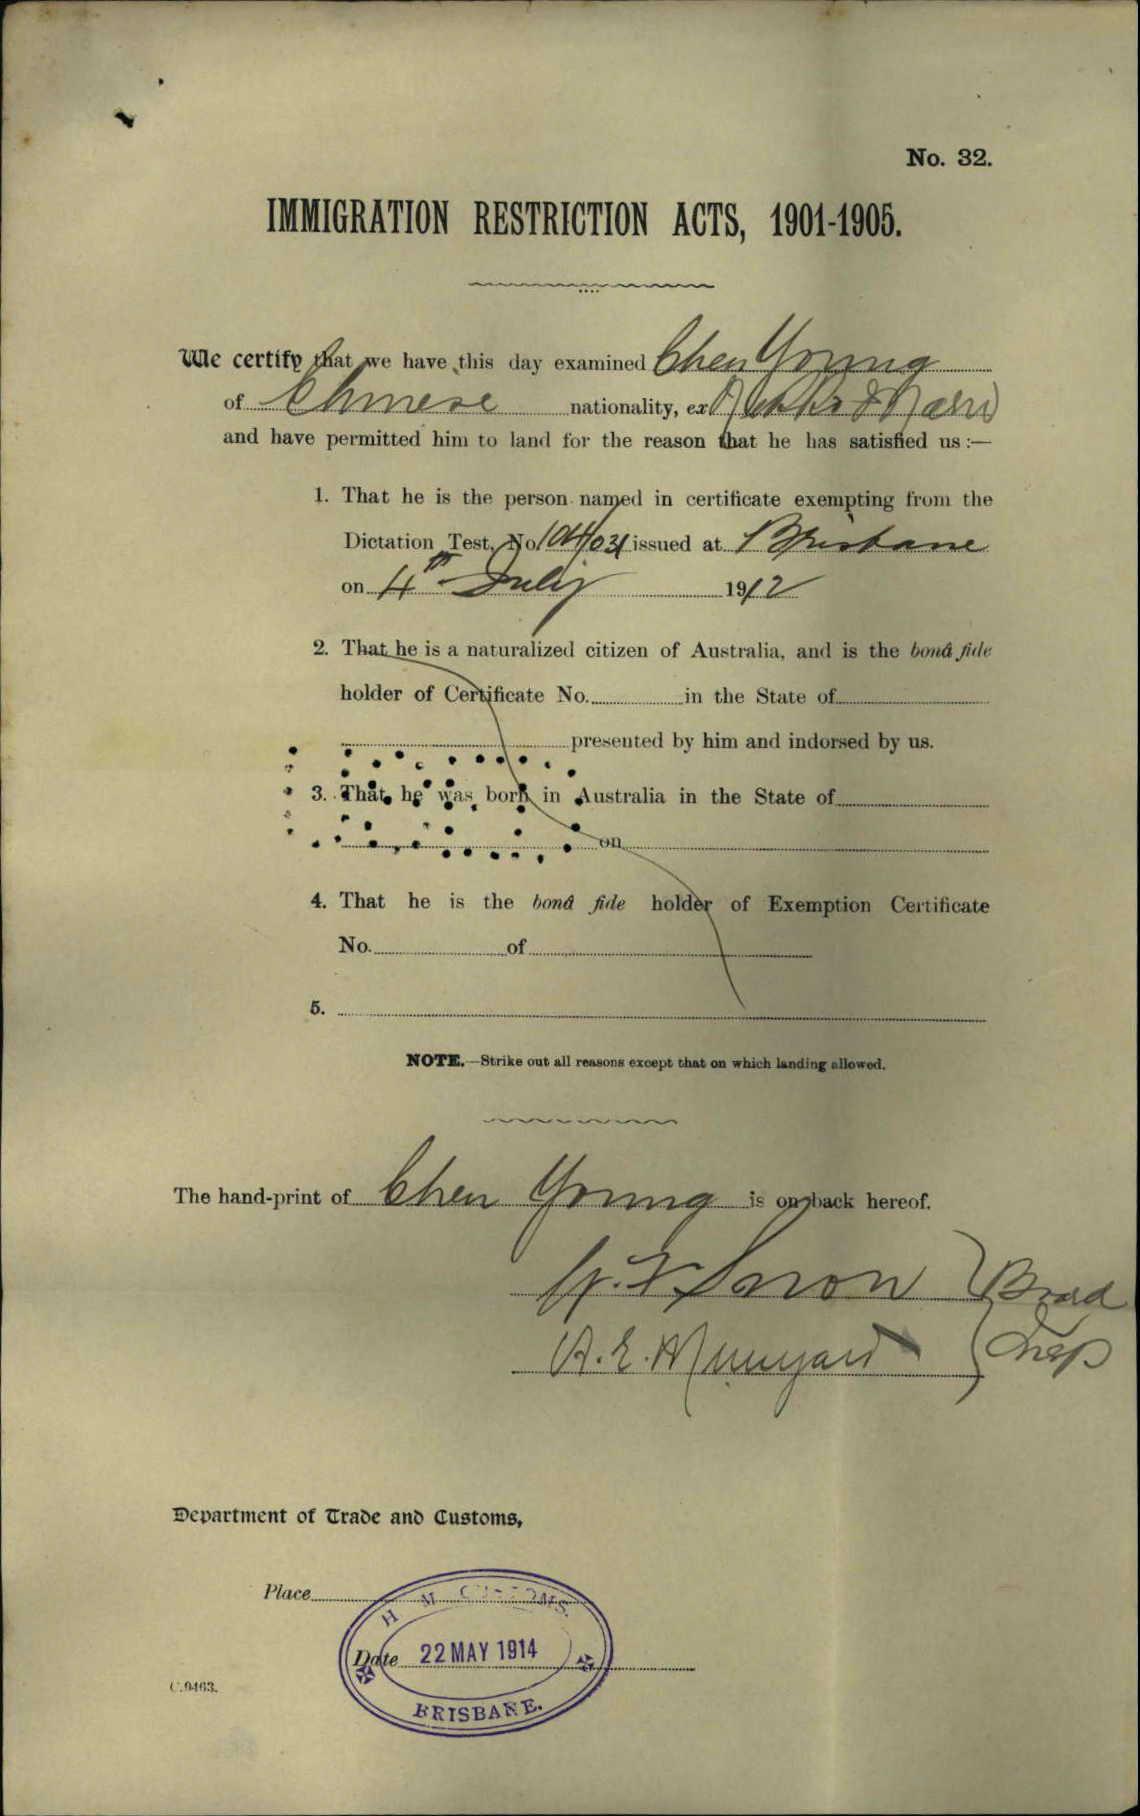 No. 32.
IMMIGRATION RESTRICTION ACTS, 1901-1905.
We certify that we have this day examined Chen Young
of Chinese nationality, ex Nikko Maru
and have permitted him to land for the reason that he has satisfied us :—
1. That he is the person named in certificate exempting from the
Dictation Test, No. 104/031 issued at Brisbane
on 4th July 1912
2. That he is a naturalized citizen of Australia, and is the bonâ fide
holder of Certificate No. in the State of
presented by him and indorsed by us.
3. That he was born in Australia in the State of
on
4. That he is the bonâ fide holder of Exemption Certificate
No. of
5.
NOTE.—Strike out all reasons except that on which landing allowed.
The hand-print of Chen Young is on back hereof.
Snow
A. E. Munyard
Department of Trade and Customs,
Place
H M CUSTOMS.
Date 22 MAY 1914
BRISBANE.
C.9463.